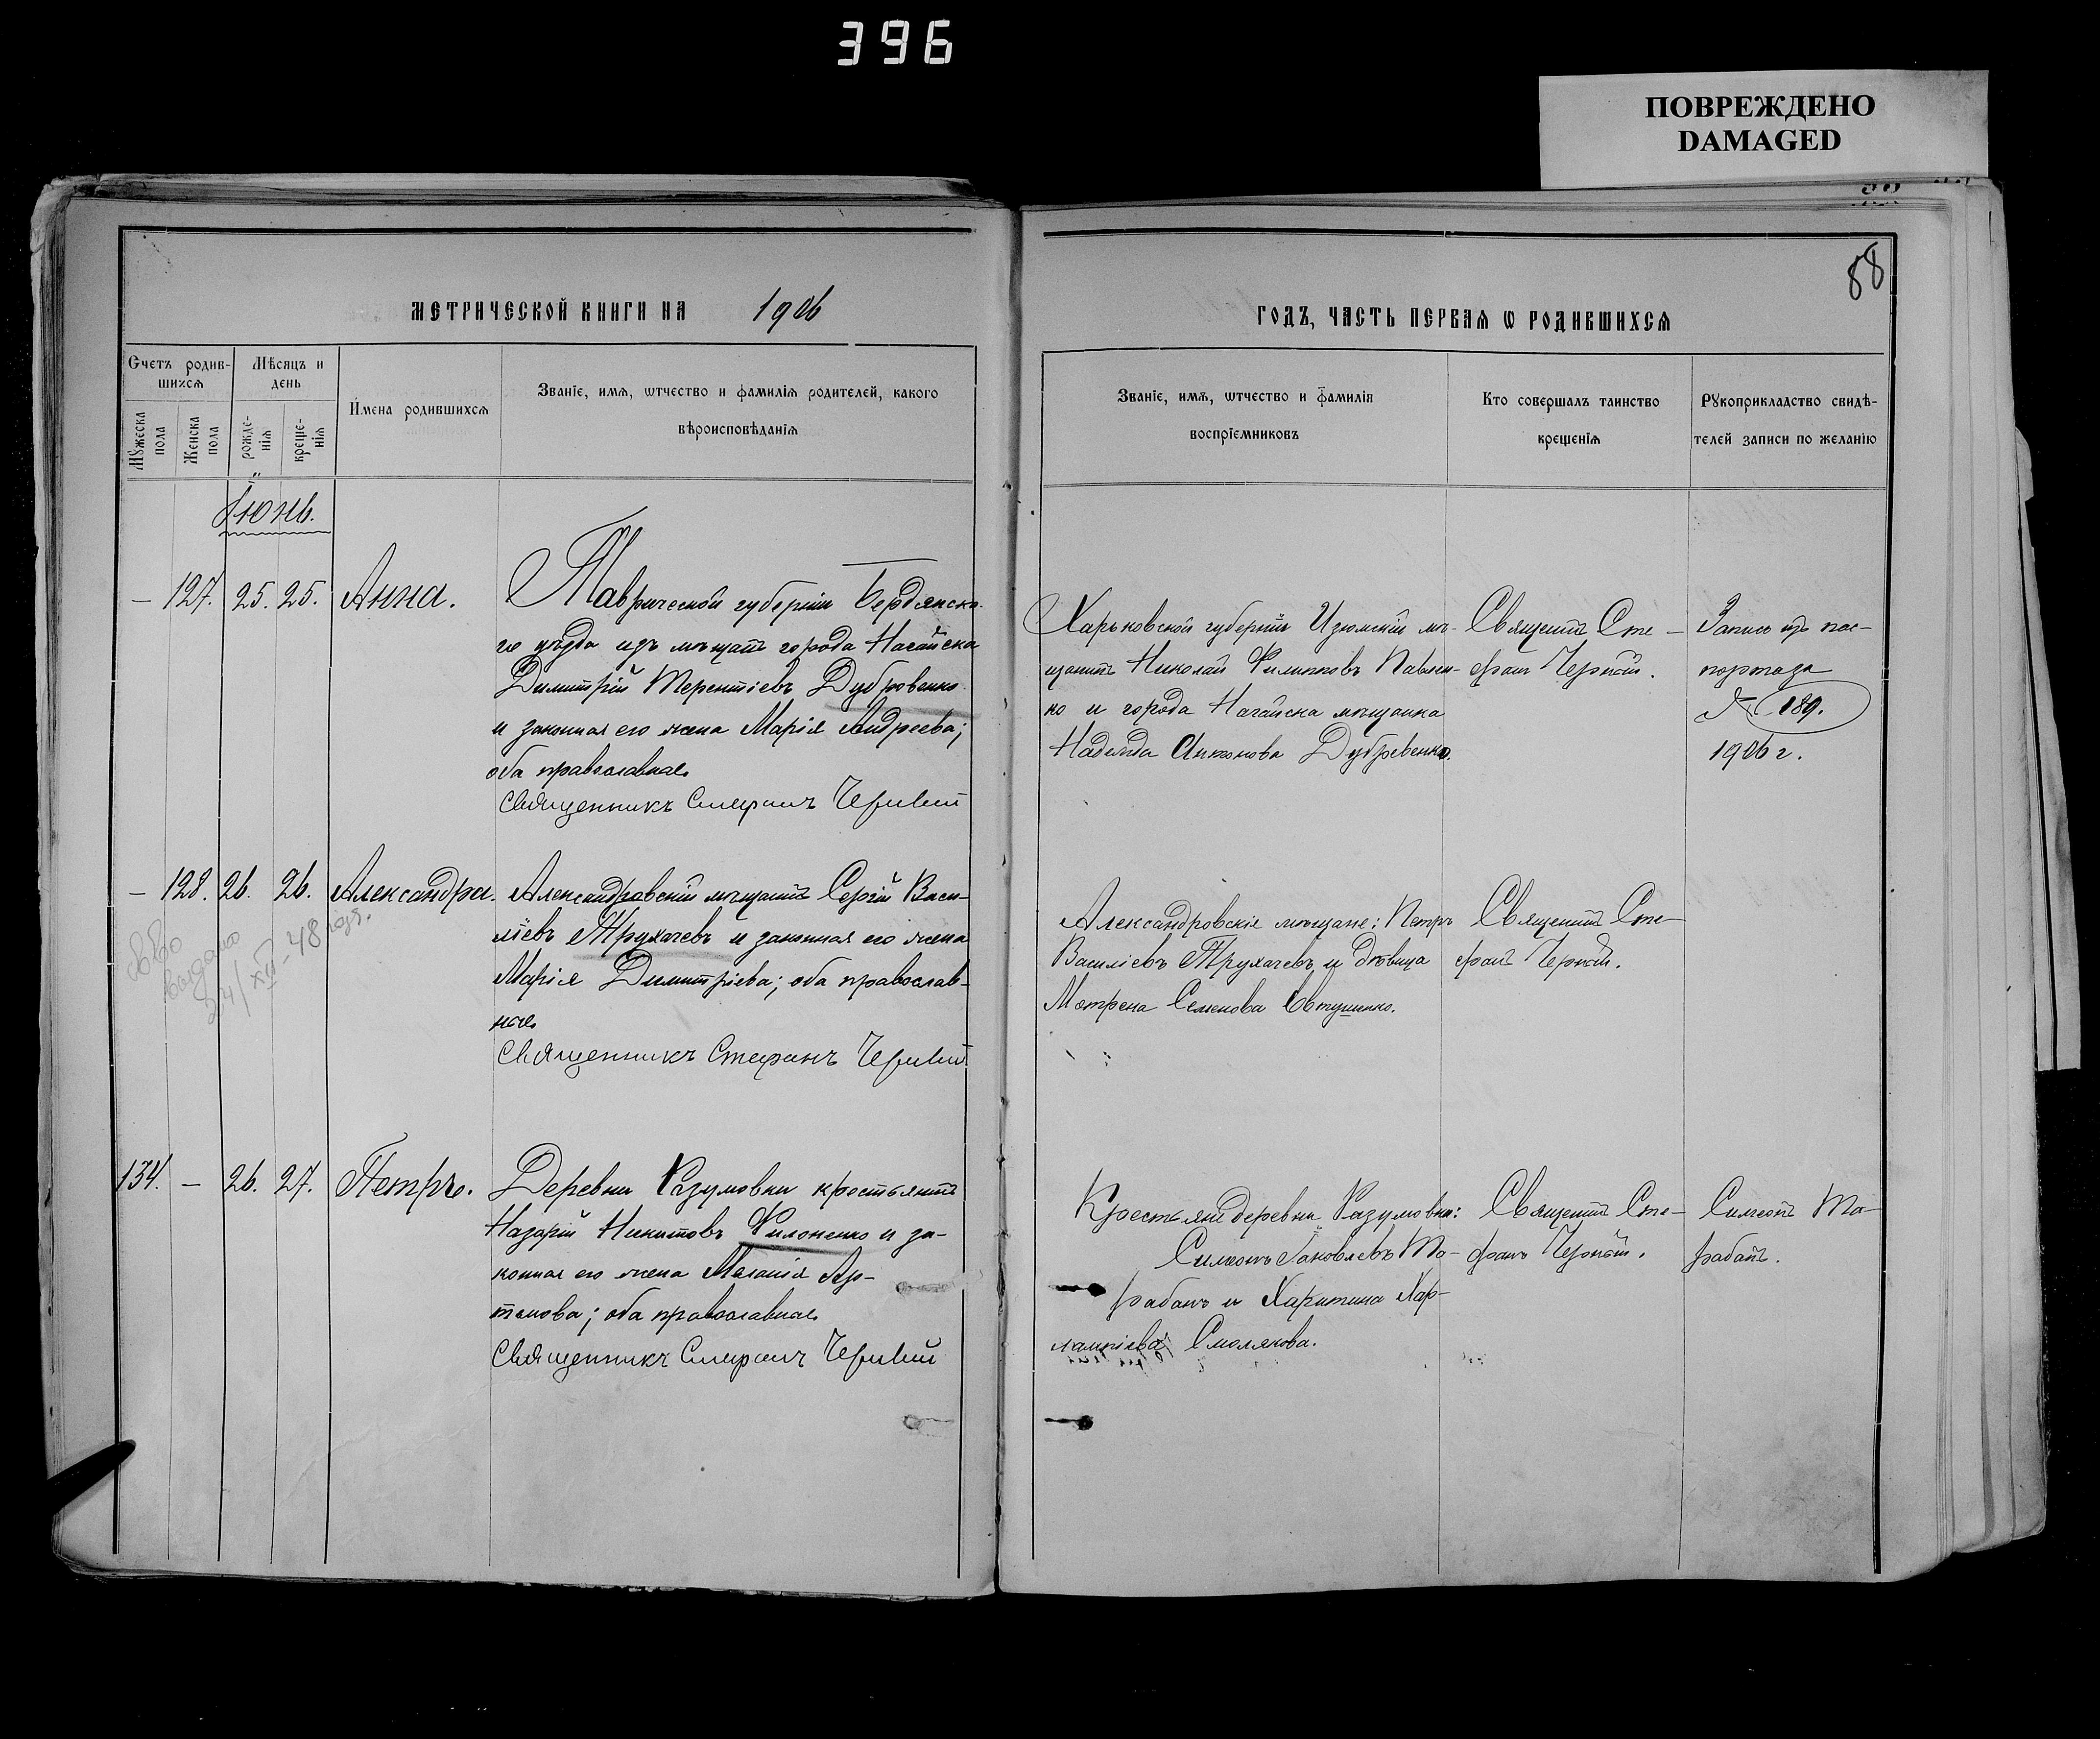 396
ПОВРЕЖДЕНО
DAMAGED
88
МЕТРИЧЕСКОЙ КНИГИ НА 1906
ГОДЪ, ЧАСТЬ ПЕРВАЯ Ѡ РОДИВШИХСЯ
Счетъ родив-
шихся
Мѣсяцъ и
день
Мужеска
пола
Женска
пола
рожде-
нія
креще-
нія
Имена родившихся
Званіе, имя, ѡтчество и фамилія родителей, какого
вѣроисповѣданія
Званіе, имя, ѡтчество и фамилія
воспріемниковъ
Кто совершалъ таинство
крещенія
Рукоприкладство свидѣ-
телей записи по желанію
Іюнь.
— 127. 25. 25. Анна.
Таврической губерніи Бердянска-
го уѣзда изъ мѣщанъ города Ногайска
Димитрій Терентіевъ Дубровенко
и законная его жена Марія Андреева;
оба православные
Священникъ Стефанъ Черный
Харьковской губерніи Изюмскій мѣ-
щанинъ Николай Филипповъ Павлен-
ко и города Ногайска мѣщанка
Надежда Антонова Дубровенко.
Священникъ Сте-
фанъ
Запись изъ пас-
порта за
№ 189.
1906 г.
— 128. 26. 26. Александра.
св-во
выдано
24/XII-48 года.
Александровскій мѣщанинъ Сергій Васи-
ліевъ Трухачевъ и законная его жена
Марія Димитріева; оба православ-
ные
Священникъ Стефанъ
Александровскіе мѣщане: Петръ
Василіевъ Трухачевъ и дѣвица
Матрена Семенова Евтушенко.
Священникъ Сте-
фанъ
134. — 26. 27. Петръ.
Деревни Разумовки крестьянинъ
Назарій Никитовъ Филоненко и за-
конная его жена Меланія Ар-
темова; оба православные
Священникъ Стефанъ
Крестьяне деревни Разумовки:
Симеонъ Яковлевъ Та-
рабанъ и Харитина Хар-
лампіева Смолякова.
Священникъ Сте-
фанъ
Симеонъ Та-
рабанъ.